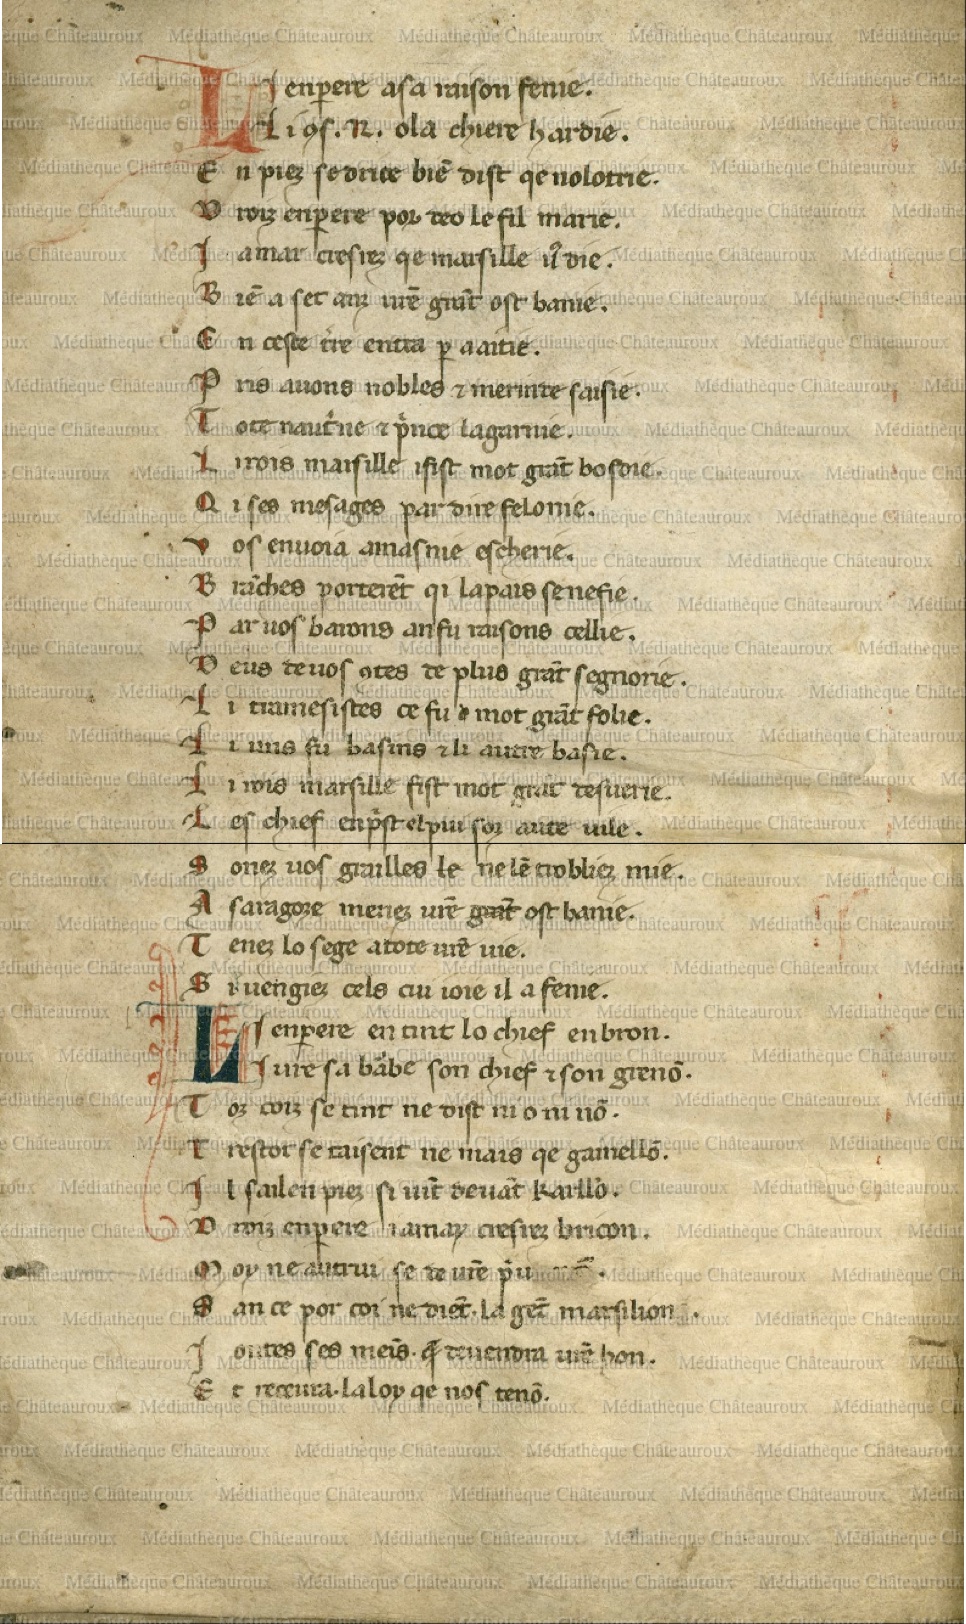 LJ enꝑere a sa raison fenie.
Li ꝯs. R. o la chiere hardie.
En piez se drice biē dist qe nolotrie.
Droiz enꝑere por deo le fil marie.
Ja mar cresrez qe marsille uꝰ die.
Biē a set anz vr̄e grāt ost banie.
En ceste t̄re entra ꝑ aaitie.
Pris auons nobles ⁊ merinde saisie.
Tote nauerne ⁊ p̄nce la garnie.
Li rois marsille i fist mot grāt bosdie.
Qi ses mesages par dire felonie.
Vos enuoia a masnie escherie.
Brāches porterēt qi la pais senefie.
Par uos barons an fu raisons cellie.
Deus de uos ꝯtes de plus grāt segnorie.
Li tramesistes ce fu mot grāt folie.
Li uns fu basins ⁊ li autre basie.
Li rois marsille fist mot grāt desuerie.
Les chief en p̄st el pui soz aute uile.
Sonez uos grailles le ne lē trobliez mie.
A saragoze menez vr̄e grāt ost banie.
Tenez lo sege a tote vr̄e vie.
Si uengiez cels cui ioie il a fenie.
LJ enꝑere en tint lo chief enbron.
Jure sa bābe son chief ⁊ son grenō.
Toz coiz se tint ne dist ni o ni nō.
Trestot se taisent ne mais qe gainellō.
Jl sailen piez si uīt deuāt karllō.
Droiz enꝑere ia mar cresrez bricon.
Moy ne autrui se de vr̄e p̄u
San ce por coi ne diēt. la gēt marsilion.
Jointes ses meīs. deuendra vr̄e hon.
Et receura. la loy qe nos tenō.